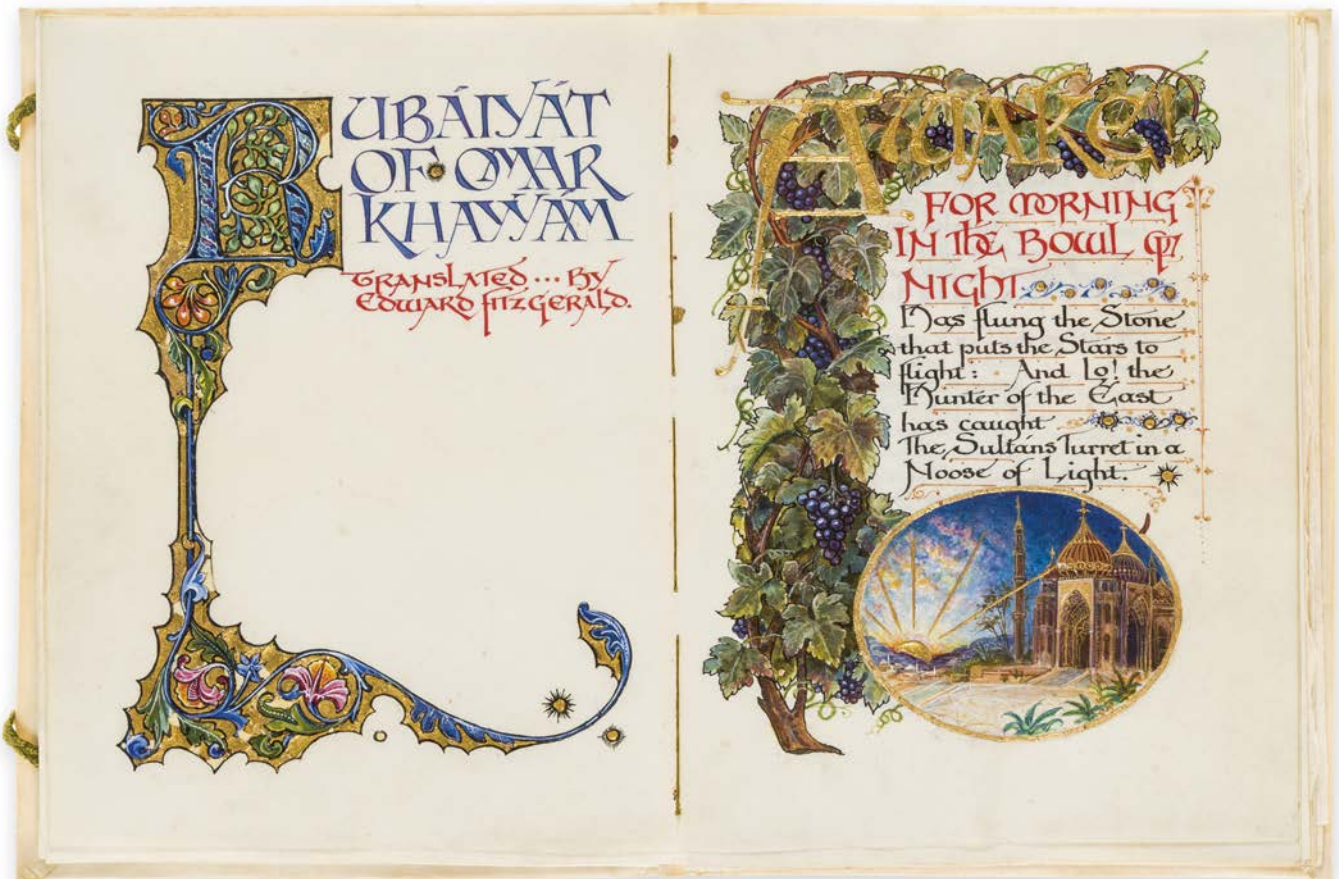 RUBÁIYÁT
OF OMAR
KHAYYÁM
TRANSLATED ... BY
EDWARD FITZGERALD.
AWAKE!
FOR MORNING
IN THE BOWL OF
NIGHT
Has flung the Stone
that puts the Stars to
flight: And Lo! the
Hunter of the East
has caught
The Sultáns Turret in a
Noose of Light.